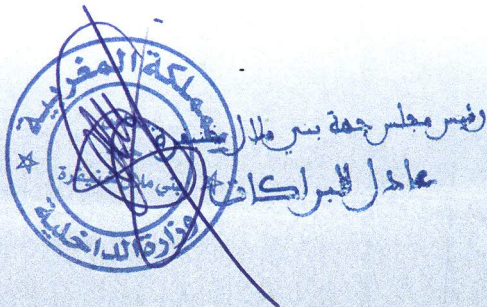 المملكة المغربية
وزارة الداخلية
بني ملال خنيفرة
رئيس مجلس جهة بني ملال خنيفرة
عادل البراكات